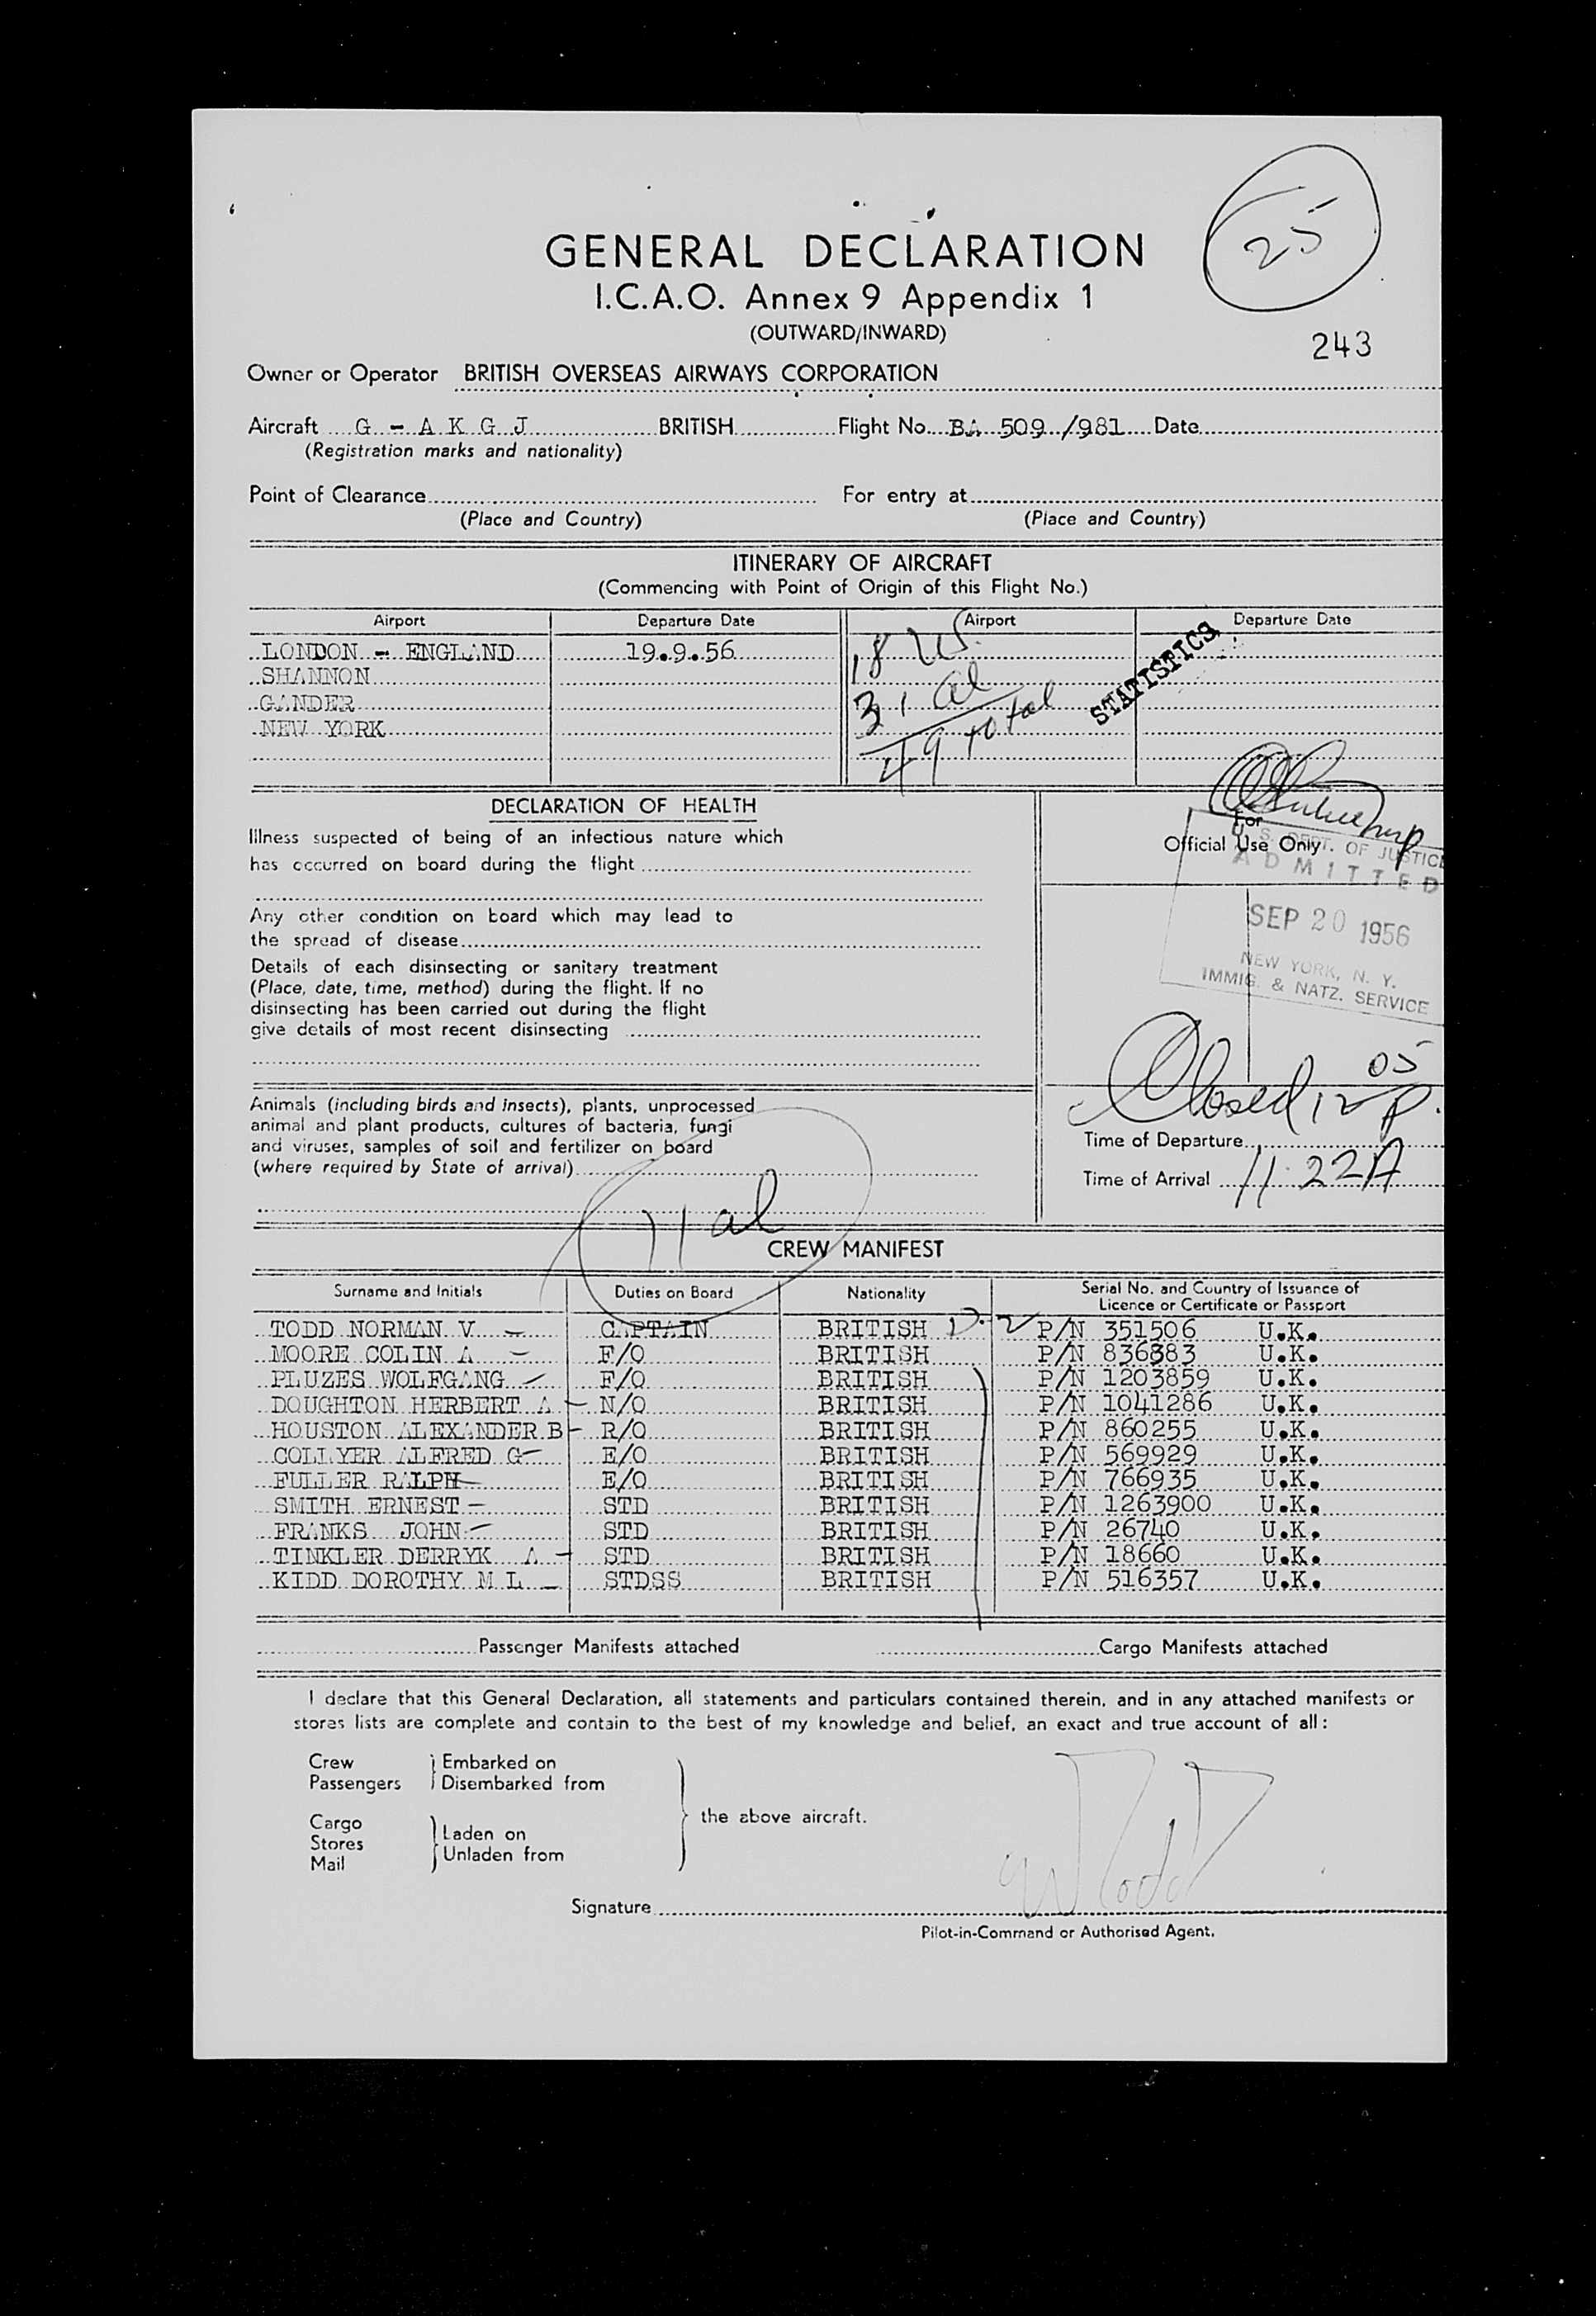 25
GENERAL DECLARATION
I.C.A.O. Annex 9 Appendix 1
(OUTWARD/INWARD)
243
Owner or Operator BRITISH OVERSEAS AIRWAYS CORPORATION
Aircraft G - A K G J BRITISH Flight No. BA 509 /981 Date
(Registration marks and nationality)
Point of Clearance For entry at
(Place and Country) (Place and Country)
ITINERARY OF AIRCRAFT
(Commencing with Point of Origin of this Flight No.)
Airport Departure Date Airport Departure Date
LONDON - ENGLAND 19.9.56 18 US.
SHANNON 31 al STATISTICS
GANDER 49 total
NEW YORK
DECLARATION OF HEALTH
Illness suspected of being of an infectious nature which
has occurred on board during the flight
Any other condition on board which may lead to
the spread of disease
Details of each disinsecting or sanitary treatment
(Place, date, time, method) during the flight. If no
disinsecting has been carried out during the flight
give details of most recent disinsecting
Animals (including birds and insects), plants, unprocessed
animal and plant products, cultures of bacteria, fungi
and viruses, samples of soil and fertilizer on board
(where required by State of arrival)
For
Official Use Only
U. S. DEPT. OF JUSTICE
ADMITTED
SEP 20 1956
NEW YORK, N. Y.
IMMIG. & NATZ. SERVICE
Closed 12 05 p.
Time of Departure
Time of Arrival 11:22A
11 al
CREW MANIFEST
Surname and Initials Duties on Board Nationality Serial No. and Country of Issuance of
Licence or Certificate or Passport
TODD NORMAN V CAPTAIN BRITISH D.2 P/N 351506 U.K.
MOORE COLIN A F/O BRITISH P/N 836383 U.K.
PLUZES WOLFGANG F/O BRITISH P/N 1203859 U.K.
DOUGHTON HERBERT A N/O BRITISH P/N 1041286 U.K.
HOUSTON ALEXANDER B R/O BRITISH P/N 860255 U.K.
COLLYER ALFRED G E/O BRITISH P/N 569929 U.K.
FULLER RALPH E/O BRITISH P/N 766935 U.K.
SMITH ERNEST STD BRITISH P/N 1263900 U.K.
FRANKS JOHN STD BRITISH P/N 26740 U.K.
TINKLER DERRYK A STD BRITISH P/N 18660 U.K.
KIDD DOROTHY M L STDSS BRITISH P/N 516357 U.K.
Passenger Manifests attached Cargo Manifests attached
I declare that this General Declaration, all statements and particulars contained therein, and in any attached manifests or
stores lists are complete and contain to the best of my knowledge and belief, an exact and true account of all:
Crew Embarked on
Passengers Disembarked from
the above aircraft.
Cargo
Stores Laden on
Mail Unladen from
Signature
Pilot-in-Command or Authorised Agent.